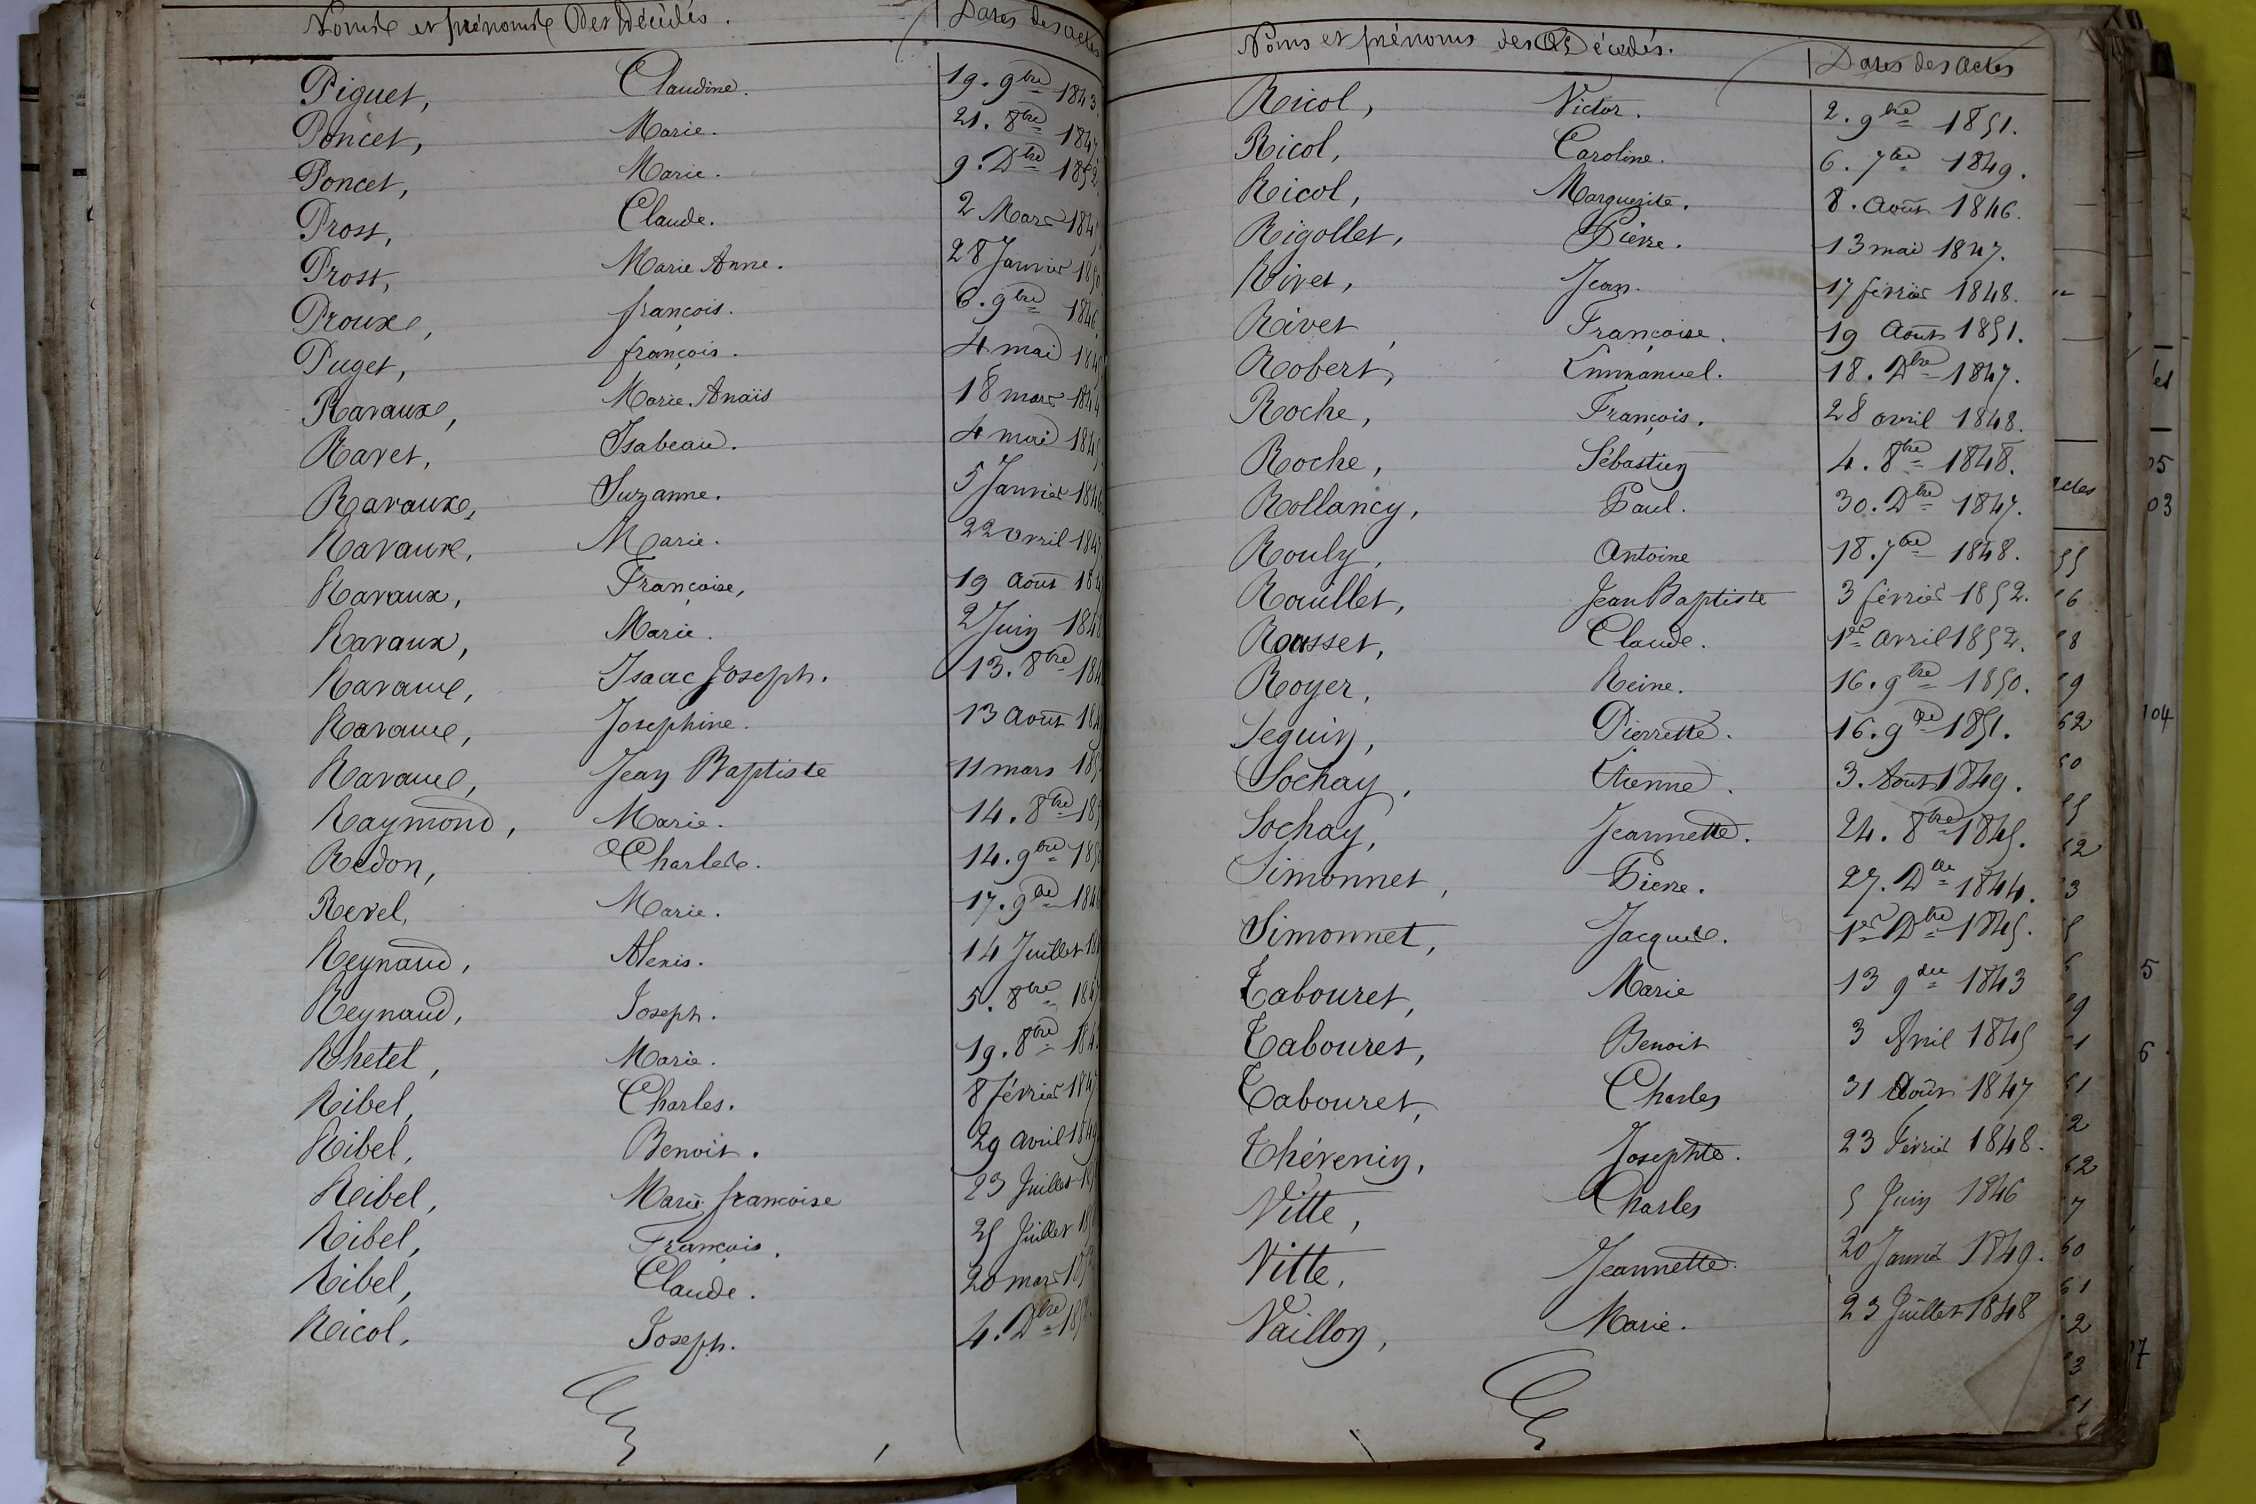 Noms et prénoms des Décédés. Dates des actes
Piguet, Claudine. 19. 9bre 1843
Poncet, Marie. 21. 8bre 1847
Poncet, Marie. 9. Dbre 1852
Prost, Claude. 2 Mars
Prost, Marie Anne. 28 Janvier 1850
Proux, françois. 6. 9bre 1846
Puget, françois. 4 mai
Ravaux, Marie Anaïs 18 mars 1844
Ravet, Isabeau. 4 mai 1845
Ravaux, Suzanne. 5 Janvier 1846
Ravaux, Marie. 22 avril
Ravaux, Françoise, 19 Août
Ravaux, Marie. 2 Juin 1848
Ravaux, Isaac Joseph. 13. 8bre
Ravaux, Josephine. 13 Août
Ravaux, Jean Baptiste 11 mars
Raymond, Marie. 14. 8bre
Redon, Charles. 14. 9bre
Revel, Marie. 17. 9bre
Reynaud, Alexis. 14 Juillet
Reynaud, Joseph. 5. 8bre 1847
Rhetet, Marie. 19. 8bre
Ribel, Charles. 8 février 1847
Ribel, Benoit. 29 avril 1849
Ribel, Marie françoise 23 Juillet
Ribel, François. 25 Juillet
Ribel, Claude. 20 mars
Ricol, Joseph. 4. Dbre
Noms et prénoms des Décedés. Dates des actes
Ricol, Victor. 2. 9bre 1851.
Ricol, Caroline. 6. 7bre 1849.
Ricol, Marguerite. 8. Août 1846.
Rigollet, Pierre. 13 mai 1847.
Rivet, Jean. 17 février 1848.
Rivet, Françoise. 19 Août 1851.
Robert, Emmanuel. 18. Dbre 1847.
Roche, François. 28 avril 1848.
Roche, Sébastien 4. 8bre 1848.
Rollancy, Paul. 30. Dbre 1847.
Rouly, Antoine 18. 7bre 1848.
Rouillet, Jean Baptiste 3 février 1852.
Rousset, Claude. 1er avril 1852.
Royer, Reine. 16. 9bre 1850.
Seguin, Pierrette. 16. 9bre 1851.
Sochay, Etienne. 3. Août 1849.
Sochay, Jeannette. 24. 8bre 1845.
Simonnet, Pierre. 27. Dbre 1844.
Simonnet, Jacques. 1er Dbre 1845.
Tabouret, Marie 13 9bre 1843
Tabouret, Benoit 3 Avril 1845
Tabouret, Charles 31 Août 1847
Thévenin, Josephte. 23 Février 1848.
Vitte, Charles 5 Juin 1846
Vitte, Jeannette. 20 Janvier 1849.
Vaillon, Marie. 23 Juillet 1848